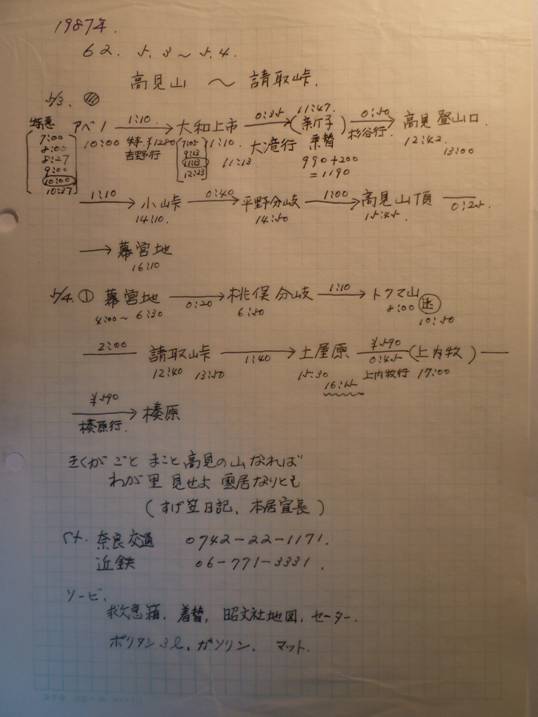 1987年.
62. 5. 3 〜 5. 4.
高見山 〜 請取峠.
5/3.
特急 7:00 8:00 8:27 9:00 10:00 10:27
アベノ 10:00 → 1:10 特急 ¥1220 吉野行 大和上市 11:10 11:13 → 0:35 大滝行 11:47 (新子 乗替) 990+200=1190 → 0:50 杉谷行 高見登山口 12:42 13:00
→ 1:10 小峠 14:10 → 0:40 平野分岐 14:50 → 1:00 高見山頂 15:45 0:25
→ 幕営地 16:10
5/4. ① 幕営地 4:00〜6:30 → 0:20 桃俣分岐 6:50 → 1:10 トクマ山 8:00 迷 10:50
2:00 請取峠 12:40 13:50 → 1:40 土屋原 15:30 16:15 ¥590 0:45 上内牧行 → (上内牧) 17:00
¥590 榛原行. → 榛原
きくがごと まこと高見の山なれば
わが里見せよ 雲居なりとも
(すげ笠日記、本居宣長)
奈良交通 0742-22-1171.
近鉄 06-771-3331.
ソービ.
救急箱, 着替, 昭文社地図, セーター.
ポリタン3ℓ, ガソリン, マット.